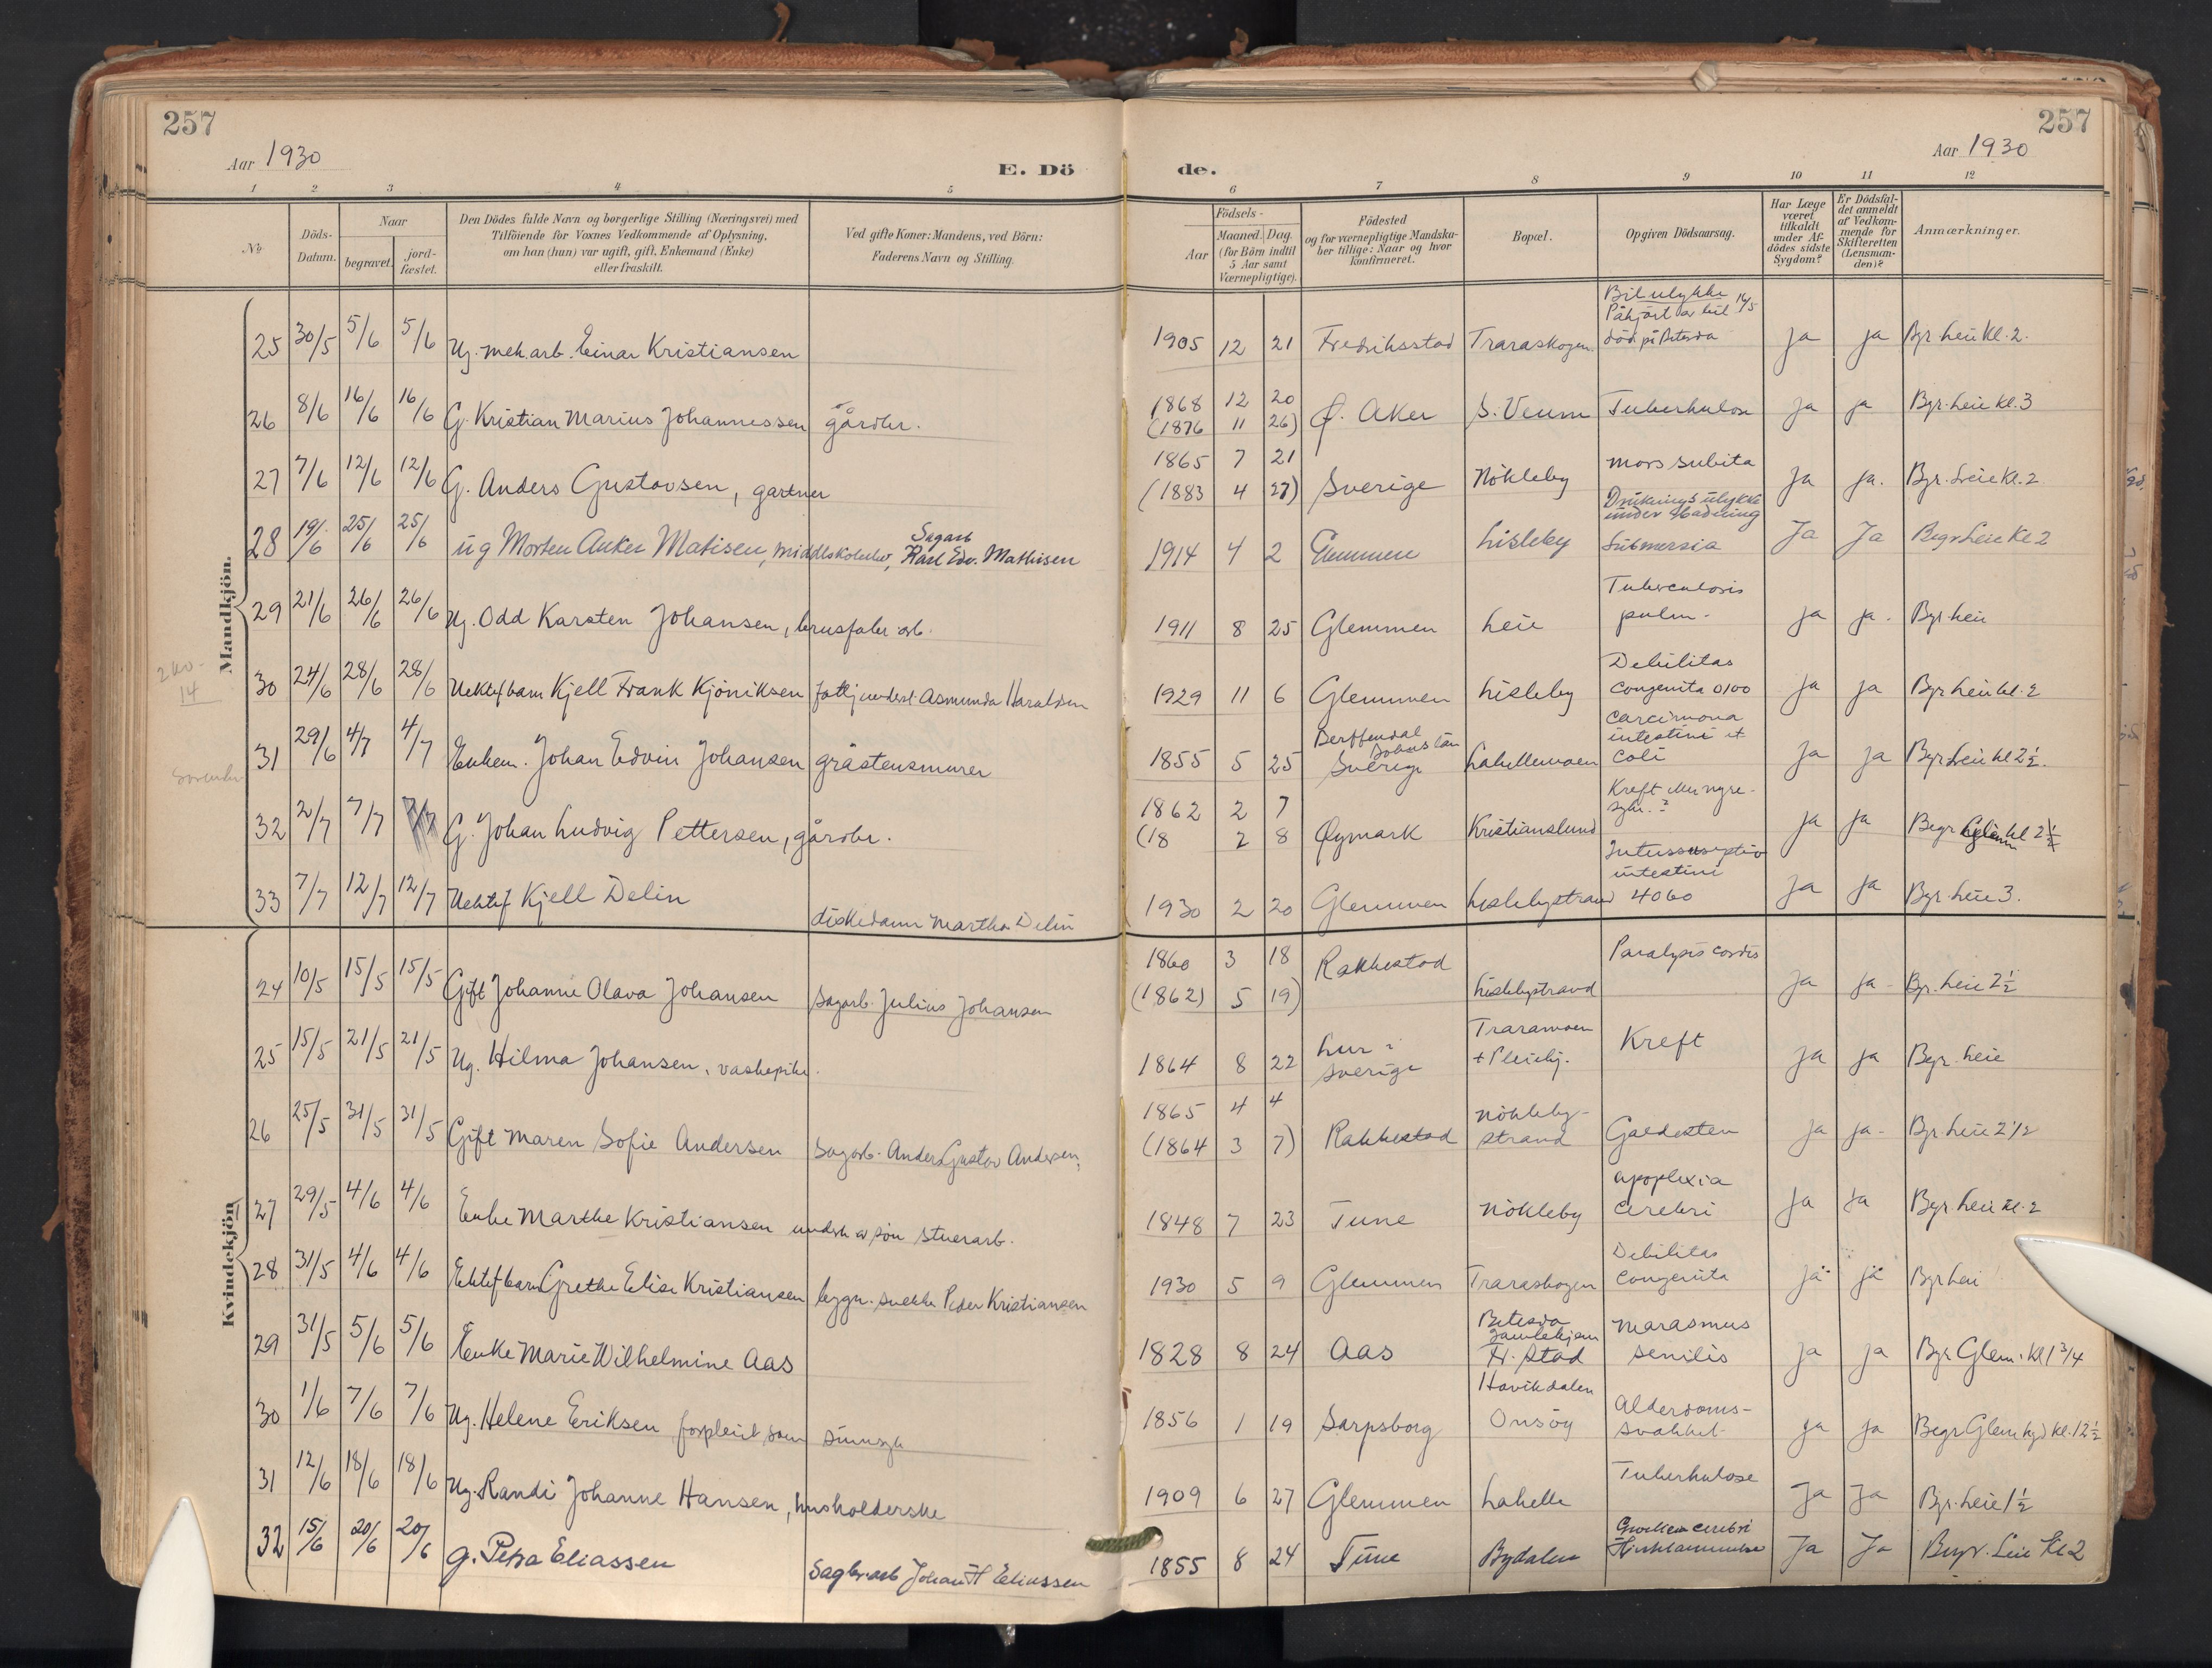 257
Aar 1930
E. Dö
1 2 3 4 5
No
Döds-Datum.
Naar
begravet.
jord-fæstet.
Den Dödes fulde Navn og borgerlige Stilling (Næringsvei) med
Tilföiende for Voxnes Vedkommende af Oplysning,
om han (hun) var ugift, gift, Enkemand (Enke)
eller fraskilt.
Ved gifte Koner: Mandens, ved Börn:
Faderens Navn og Stilling.
Mandkjön.
25 30/5 5/6 5/6 Ug. mek.arb. Einar Kristiansen
26 8/6 16/6 16/6 G. Kristian Marius Johannessen gårdbr.
27 7/6 12/6 12/6 G. Anders Gustavsen, gartner
28 19/6 25/6 25/6 ug Morten Anker Matisen, middlskoleelev, Sagarb Karl Edv. Mathisen
29 21/6 26/6 26/6 Ug. Odd Karsten Johansen, brusfabr arb.
30 24/6 28/6 28/6 Uektef barn Kjell Frank Kjöniksen Asmunda Haraldsen
31 29/6 4/7 4/7 Enkem. Johan Edvin Johansen gråstensmurer
32 2/7 7/7 7/7 G. Johan Ludvig Pettersen, gårdbr.
33 7/7 12/7 12/7 Uektef Kjell Delin diskedame Martha Delin
Kvindekjön
24 10/5 15/5 15/5 Gift Johanne Olava Johansen Sagarb. Julius Johansen
25 15/5 21/5 21/5 Ug. Hilma Johansen, vaskepike.
26 25/5 31/5 31/5 Gift Maren Sofie Andersen Sagarb. Anders Gustav Andersen,
27 29/5 4/6 4/6 Enke Marthe Kristiansen underh av sön stuerarb.
28 31/5 4/6 4/6 Ektef barn Grethe Elise Kristiansen bygn. snekke Peder Kristiansen
29 31/5 5/6 5/6 Enke Marie Wilhelmine Aas
30 1/6 7/6 7/6 Ug. Helene Eriksen forpleiet som sinnsyk
31 12/6 18/6 18/6 Ug. Randi Johanne Hansen, husholderske
32 15/6 20/6 20/6 g. Petra Eliassen Sagbr.arb Johan H Eliassen
257
Aar 1930
de.
6 7 8 9 10 11 12
Födsels-
Aar
Maaned. Dag.
(for Börn indtil
5 Aar samt
Værnepligtige).
Födested
og for værnepligtige Mandska-
ber tillige: Naar og hvor
konfirmeret.
Bopæl.
Opgiven Dödsaarsag.
Har Læge
været
tilkaldt
under Af-
dödes sidste
Sygdom?
Er Dödsfal-
det anmeldt
af Vedkom-
mende for
Skifteretten
(Lensman-
den)?
Anmærkninger.
1905 12 21 Fredriksstad Traraskogen Bilulykke Påkjört av bil 16/5 död på Betesda ja ja Bgr. Leie kl. 2.
1868 12 20
(1876 11 26) Ö. Aker S. Veum Tuberkulose ja ja Bgr. Leie kl. 3
1865 7 21
(1883 4 27) Sverige Nökleby mors subita ja ja. Bgr. Leie kl. 2
1914 4 2 Glemmen Lisleby Drukningsulykke under badning Submersia Ja Ja Begr Leie kl 2
1911 8 25 Glemmen Leie Tuberculosis pulm. ja ja. Bgr. Leie
1929 11 6 Glemmen Lisleby Debilitas congenita 0100 ja ja Bgr Leie kl. 2
1855 5 25 Sverige Lahellemoen Carcinoma intestini et coli ja ja Bgr Leie kl 2½.
1862 2 7
(18 2 8 Öymark Kristianslund Kreft ja ja Begr Glem kl 2½
1930 2 20 Glemmen Lislebystrand intestini 4060 ja ja Bgr. Leie 3.
1860 3 18
(1862) 5 19) Rakkestad Lislebystrand Paralysis cordis ja ja Bgr. Leie 2½
1864 8 22 Lur i Sverige Traramoen + Pleiehj. Kreft ja ja Bgr. Leie
1865 4 4
(1864 3 7) Rakkestad Nökleby-strand Galdesten ja ja Bgr. Leie 2½
1848 7 23 Tune Nökleby apoplexia cerebri ja ja Bgr. Leie kl. 2
1930 5 9 Glemmen Traraskogen Debilitas congenita ja ja Bgr Leie
1828 8 24 Aas Betesda Gamlehjem Fr. stad marasmus senilis ja ja Bgr Glem. kl 1 3/4
1856 1 19 Sarpsborg Havikdalen Onsöy Alderdoms-svakhet ja ja Begr Glem kgd kl. 12½
1909 6 27 Glemmen Lahelle Tuberkulose Ja Ja Bgr. Leie 1½
1855 8 24 Tune Bydalen cerebri Ja Ja Begr. Leie Kl 2